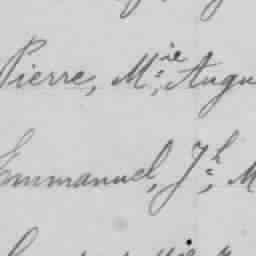 Pierre, M.ie, Augu
Emmanuel, J.h, M